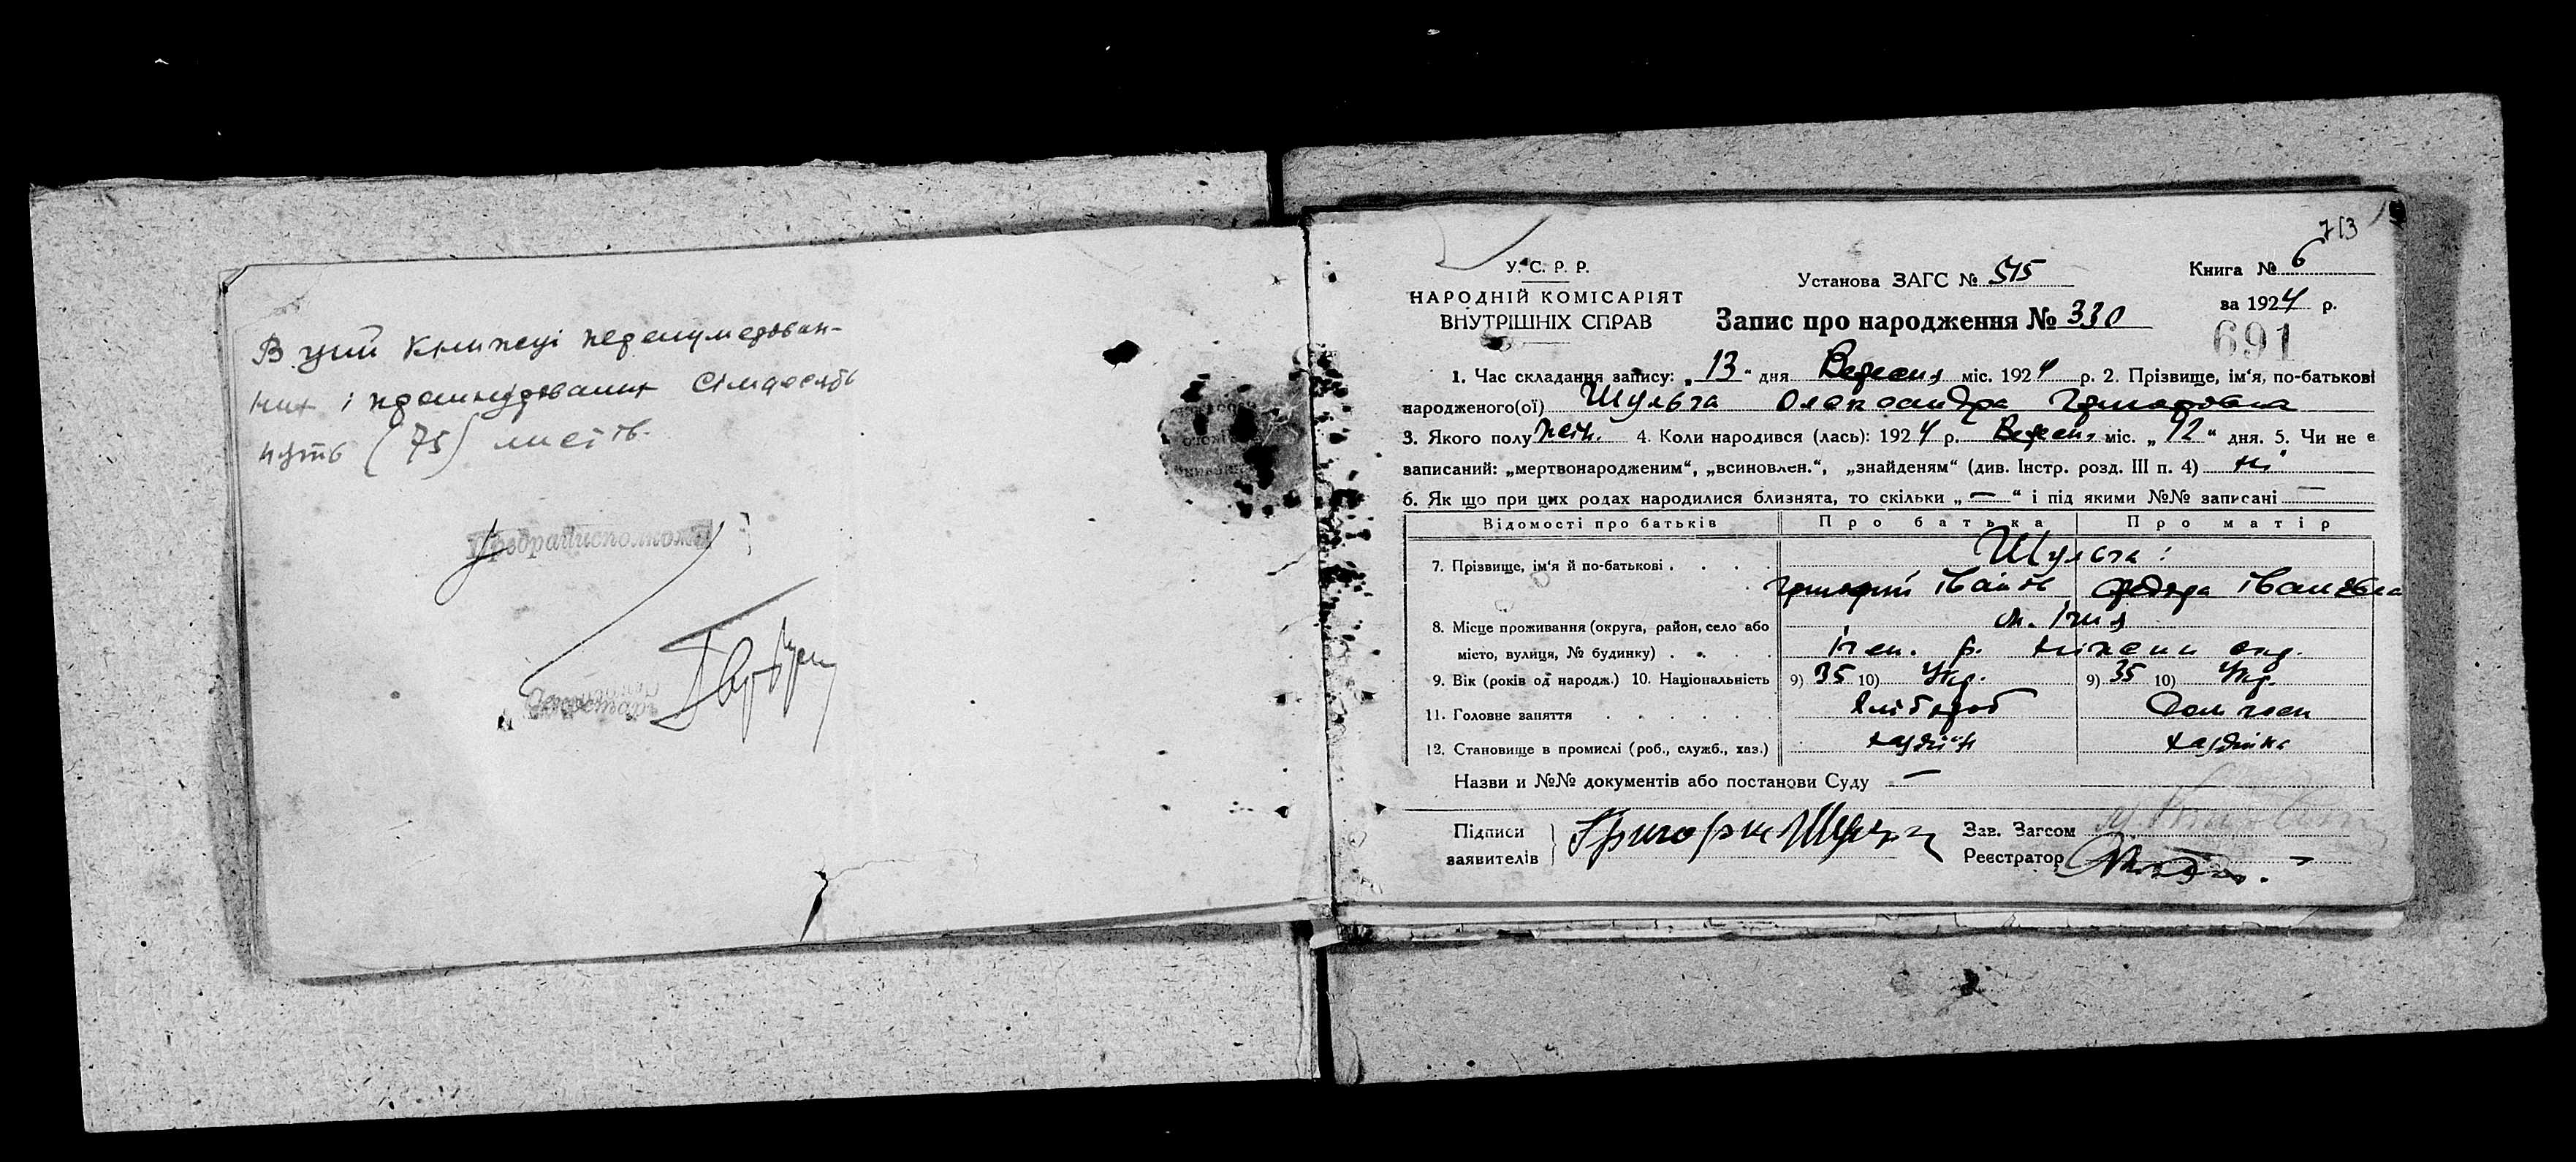 В цій книжці перенумерован-
них і прошнурованих сімдесять
пять (75) листів.
Предрайисполкома
Секретарь
713
У. С. Р. Р.
НАРОДНІЙ КОМІСАРІЯТ
ВНУТРІШНІХ СПРАВ
Установа ЗАГС № 515
Книга № 6
за 1924 р.
Запис про народження № 330
691
1. Час складання запису: „13“ дня Вересня міс. 1924 р. 2. Прізвище, ім‘я, по-батькові
народженого(ої) Шульга Олександра Григоровна
3. Якого полу жін. 4. Коли народився (лась): 1924 р. Вересня міс. „12“ дня. 5. Чи не є
записаний: „мертвонародженим“, „всиновлен.“, „знайденям“ (див. Інстр. розд. III п. 4) ні
6. Як що при цих родах народилися близнята, то скільки „—“ і під якими №№ записані —
Відомості про батьків Про батька Про матір
7. Прізвище, ім‘я й по-батькові . . . . Шульга:
Григорій Іванов Федора Івановна
8. Місце проживання (округа, район, село або м. Ічня
місто, вулиця, № будинку) . . . . Ічен. р. Ніжени окр.
9. Вік (років од народж.) 10. Національність 9) 35 10) Укр. 9) 35 10) Укр.
11. Головне заняття . . . . . Хлібороб
12. Становище в промислі (роб., служб., хаз.) хазяїн хазяйка
Назви и №№ документів або постанови Суду —
Підписи
заявителів
Григорий Шульга
Зав. Загсом
Реєстратор